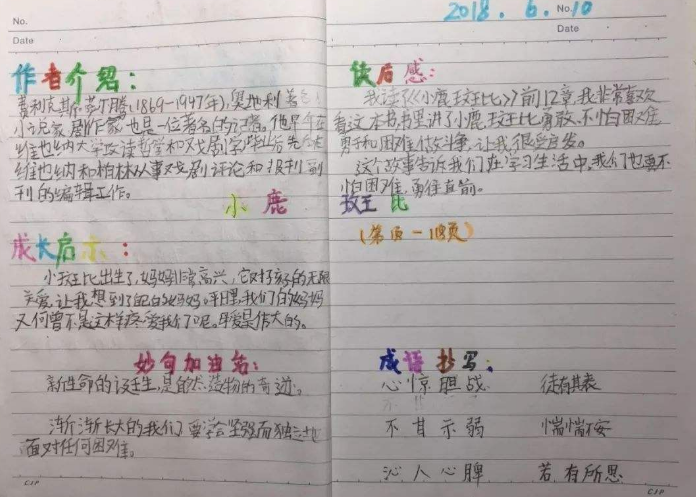 No.
Date
作者介绍：
费利克斯·萨尔腾(1869-1947年)，奥地利著名
小说家，剧作家，也是一位著名的记者。他早年在
维也纳大学攻读哲学和戏剧学，毕业后先后在
维也纳和柏林从事戏剧评论和报刊副
刊的编辑工作。
小鹿
成长启示：
小班比出生了，妈妈非常高兴，它对孩子的无限
关爱，让我想到了自己的妈妈。平日里，我们的妈妈
又何曾不是这样疼爱我们呢。母爱是伟大的。
妙句加油站：
新生命的诞生，是自然造物的奇迹。
渐渐长大的我们要学会坚强而独立地
面对任何困难。
CIP
2018.6.10
No.
Date
读后感：
我读了《小鹿班比》前12章，我非常喜欢
看这本书，书里讲了小鹿班比勇敢、不怕困难
和困难做斗争，让我很受启发。
这个故事告诉我们在学习生活中，我们也要不
怕困难，勇往直前。
班比
成语抄写：
心惊胆战 徒有其表
不甘示弱 惴惴不安
沁人心脾 若有所思
CIP